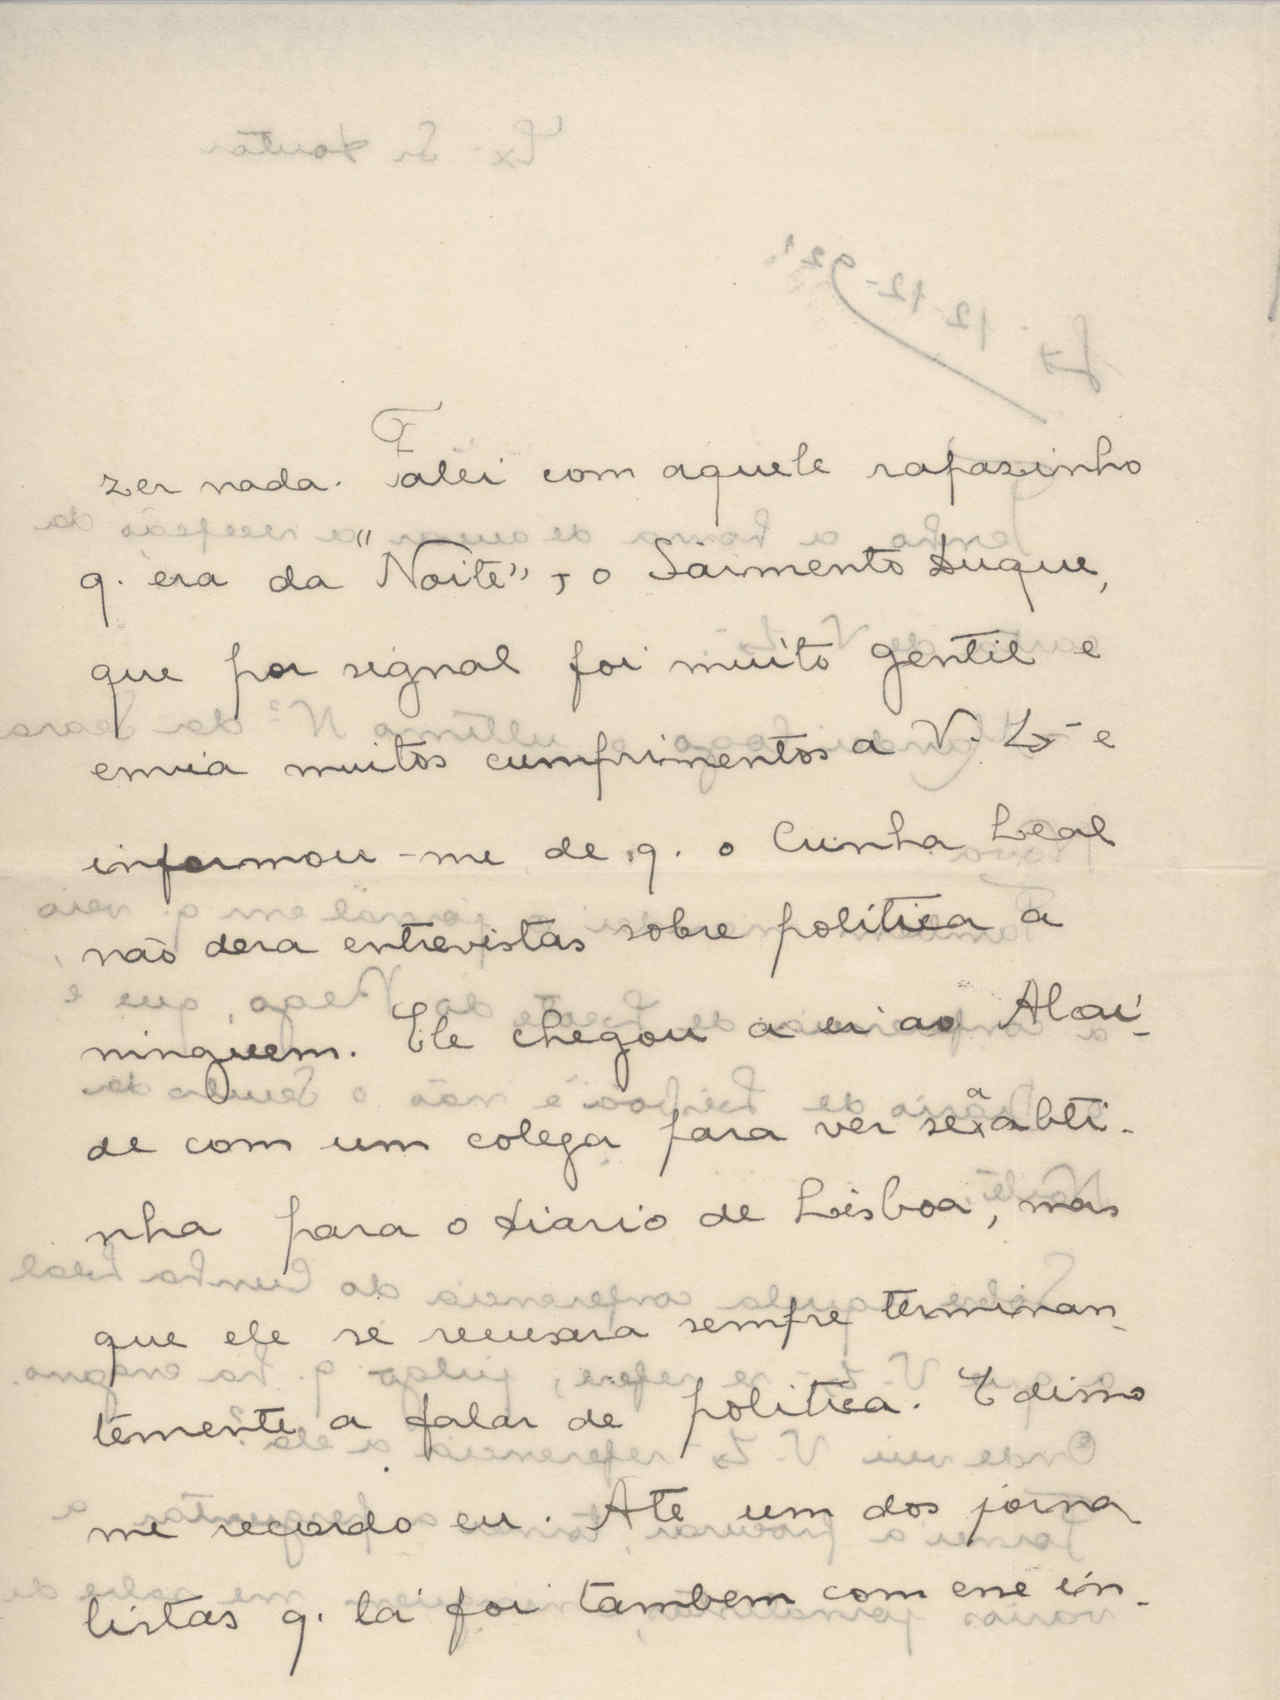 zer nada. Falei com aquele rapazinho
q. era da "Noite", o Sarmento Duque,
que por signal foi muito gentil e
envia muitos cumprimentos a V. Ex e
informou-me de q. o Cunha Leal
não dera entrevistas sobre politica a
ninguem. Ele chegou a ir ao Alcai-
de com um colega para ver se a abti-
nha para o Diario de Lisboa, mas
que ele se recusara sempre terminan-
temente a falar de politica. E disso
me recordo eu. Até um dos jorna
listas q. lá foi tambem com esse in-